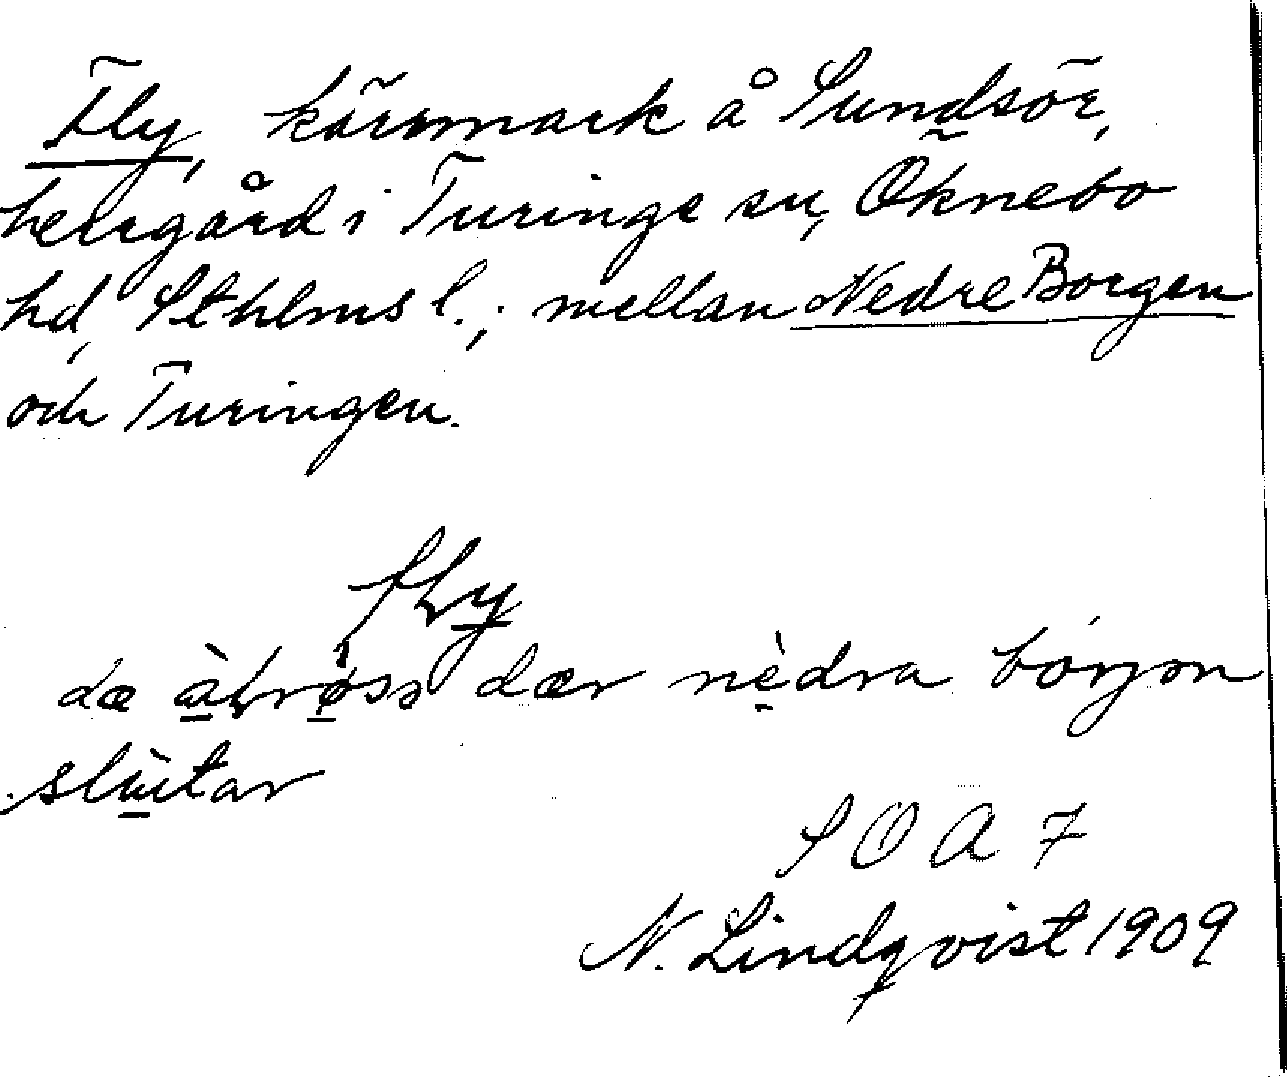 Fly, kärrmark å Sundsör,
herrgård i Turinge sn, Öknebo
hd, Sthlms l.; mellan Nedre Borgen
och Turingen.
fly
dæ dær nèdra bórjən
slùtar
S O A 7
N. Lindqvist 1909